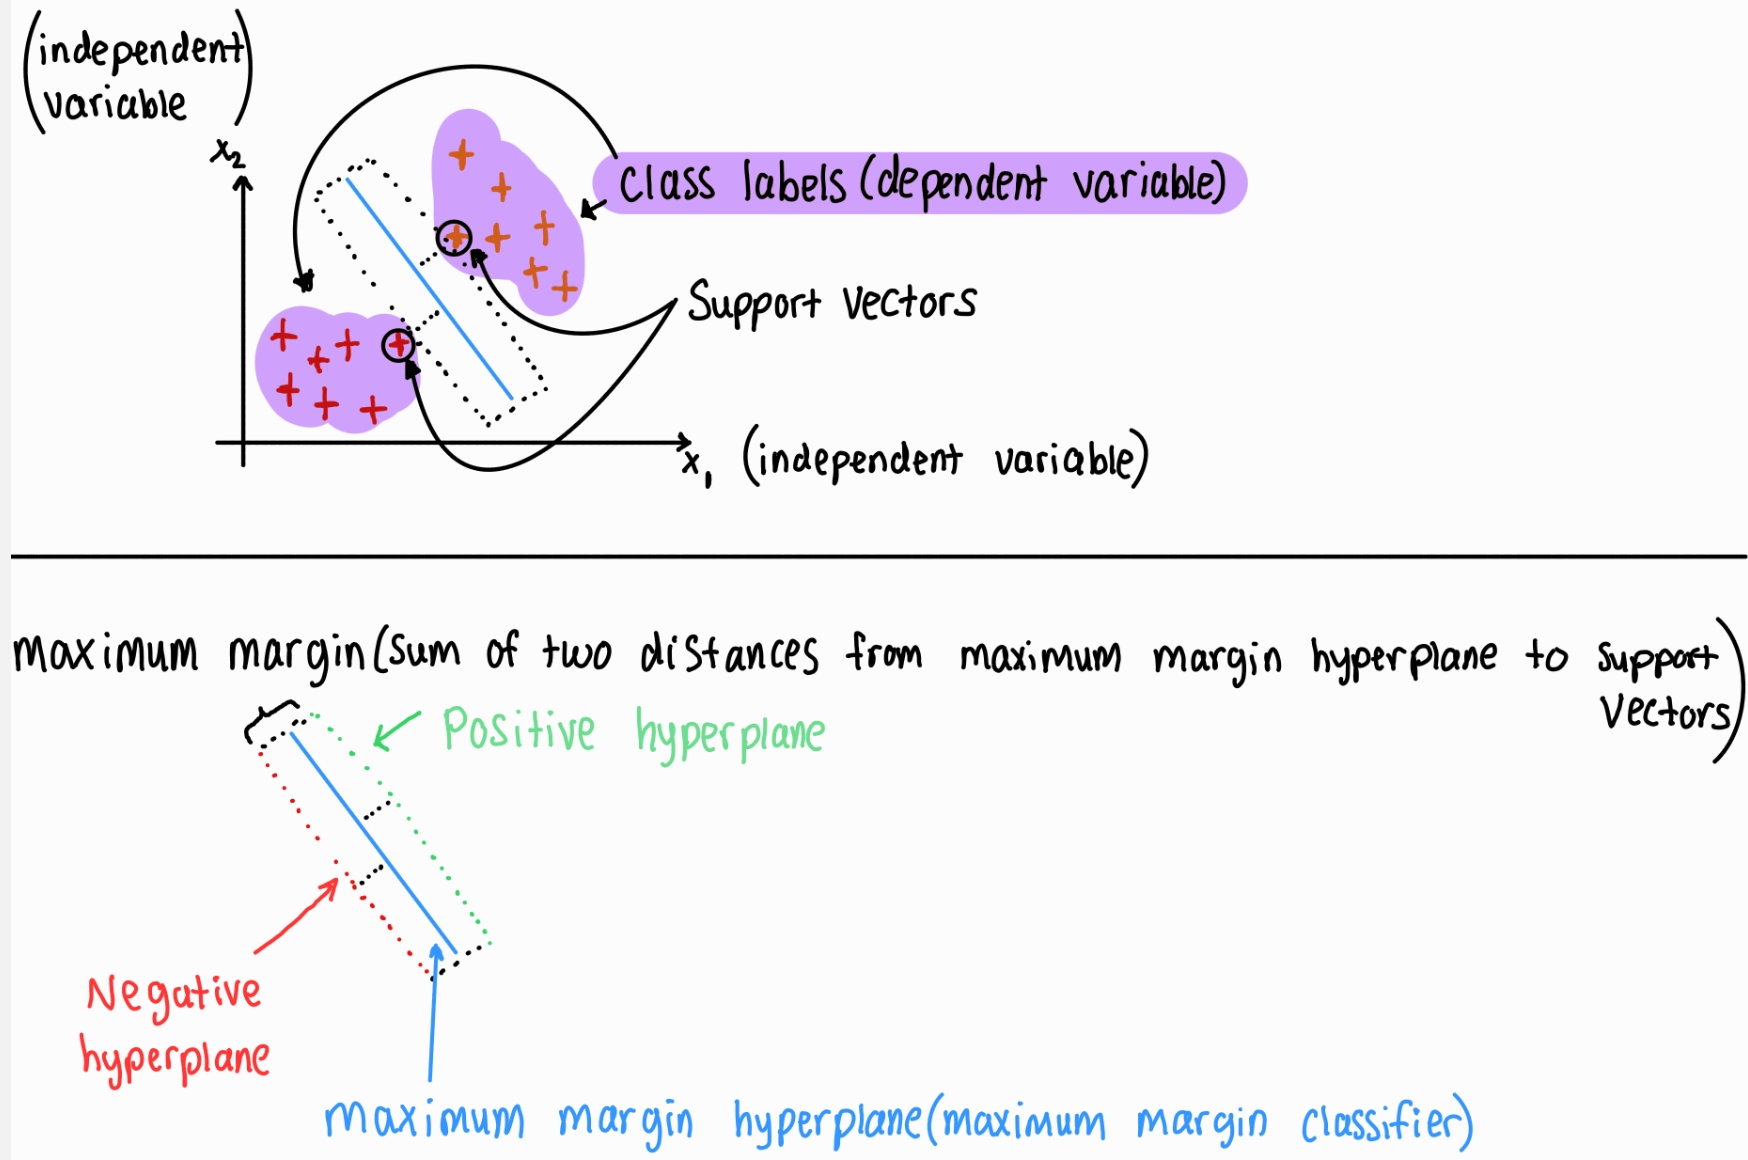 (independent
variable)
x₂
Class labels (dependent variable)
Support Vectors
x₁ (independent variable)
maximum margin (sum of two distances from maximum margin hyperplane to support
vectors)
Positive hyperplane
Negative
hyperplane
maximum margin hyperplane (maximum margin classifier)